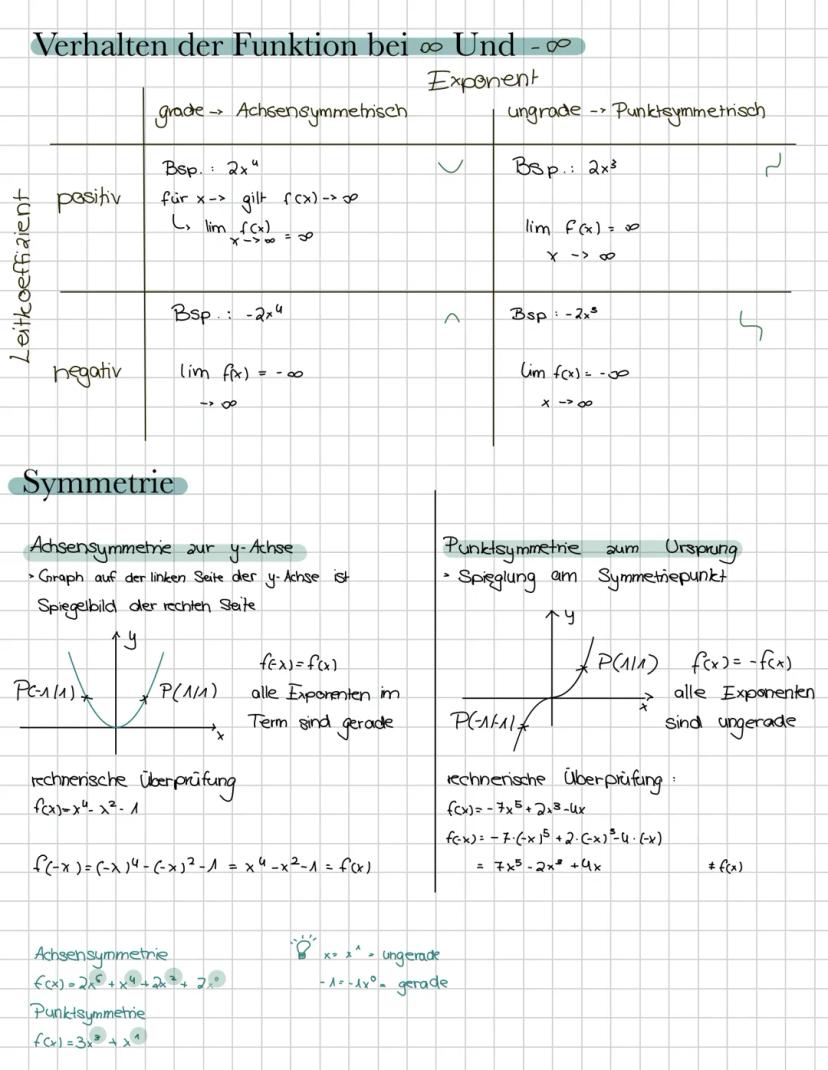 Verhalten der Funktion bei ∞ Und -∞
Exponent
grade → Achsensymmetrisch
ungrade -> Punktsymmetrisch
Leitkoeffizient
positiv
Bsp.: 2x⁴
für x -> gilt f(x) -> ∞
↳ lim f(x) = ∞
x -> ∞
Bsp.: 2x³
lim f(x) = ∞
x -> ∞
negativ
Bsp.: -2x⁴
lim f(x) = -∞
-> ∞
Bsp: -2x³
lim f(x) = -∞
x -> ∞
Symmetrie
Achsensymmetrie zur y-Achse
> Graph auf der linken Seite der y-Achse ist
Spiegelbild der rechten Seite
y
P(-1|1)
P(1|1)
x
f(-x)=f(x)
alle Exponenten im
Term sind gerade
rechnerische Überprüfung
f(x)=x⁴-x²-1
f(-x)=(-x)⁴-(-x)²-1 = x⁴-x²-1 = f(x)
Punktsymmetrie zum Ursprung
> Spieglung am Symmetriepunkt
y
P(1|1)
x
P(-1|-1)
f(x)= -f(x)
alle Exponenten
sind ungerade
rechnerische Überprüfung:
f(x)= -7x⁵+2x³-4x
f(-x)= -7·(-x)⁵+2·(-x)³-4·(-x)
= 7x⁵-2x³+4x ≠ f(x)
Achsensymmetrie
f(x)=2x⁶+x⁴+2x²+2x⁰
Punktsymmetrie
f(x)=3x³+x¹
x= x¹ = ungerade
-1=-1x⁰= gerade